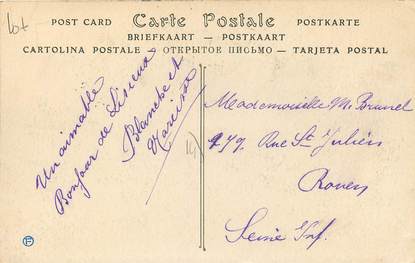 Lot
POST CARD Carte Postale POSTKARTE
BRIEFKAART — POSTKAART
CARTOLINA POSTALE — ОТКРЫТОЕ ПИСЬМО — TARJETA POSTAL
Un aimable
Bonjour de Lisieux
Blanche et
Narcisse
Mademoiselle M. Brunel
179, Rue St Julien
Rouen
Seine Inf.